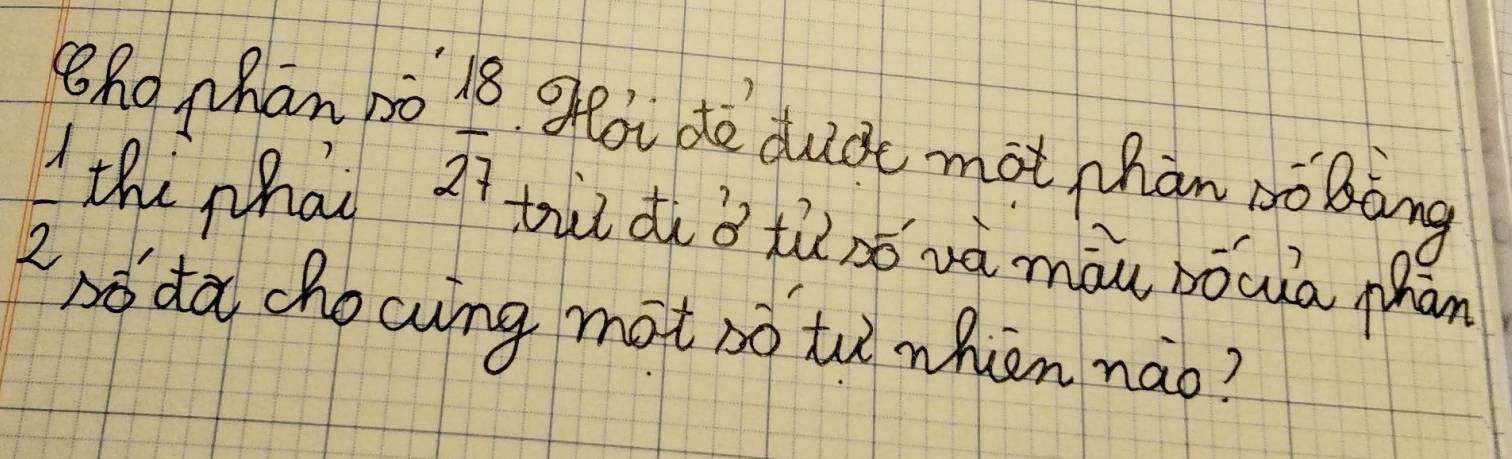 Cho phân số 18/27. Hỏi để được một phân số bằng
1/2 thì phải trừ đi ở tử số và mẫu số của phân
số đã cho cùng một số tự nhiên nào?